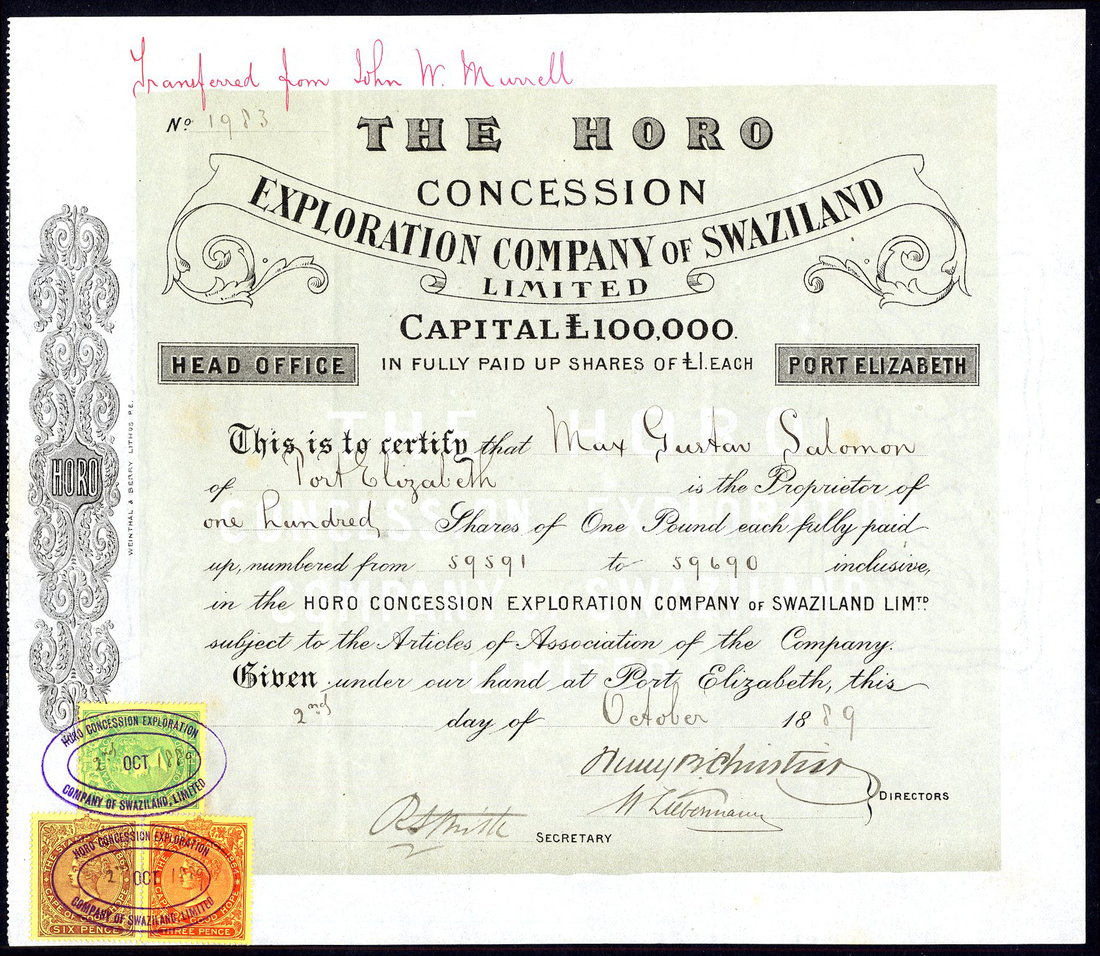 Transferred from John W. Murrell
No 1983
THE HORO
CONCESSION
EXPLORATION COMPANY OF SWAZILAND
LIMITED
CAPITAL £100,000.
HEAD OFFICE
IN FULLY PAID UP SHARES OF £1. EACH
PORT ELIZABETH
This is to certify that Max Gustav Salomon
of Port Elizabeth is the Proprietor of
one hundred Shares of One Pound each fully paid
up, numbered from 59591 to 59690 inclusive,
in the HORO CONCESSION EXPLORATION COMPANY OF SWAZILAND LIMTD
subject to the Articles of Association of the Company.
Given under our hand at Port Elizabeth, this
2nd day of October 1889
DIRECTORS
W Liebermann
SECRETARY
HORO
WEINTHAL & BERRY LITHOS P.E.
THE HORO
CONCESSION EXPLORATION
COMPANY OF SWAZILAND
LIMITED
HORO CONCESSION EXPLORATION
2nd OCT 1889
COMPANY OF SWAZILAND, LIMITED
HORO CONCESSION EXPLORATION
2nd OCT 1889
COMPANY OF SWAZILAND, LIMITED
CAPE OF GOOD HOPE
SIX PENCE
THREE PENCE